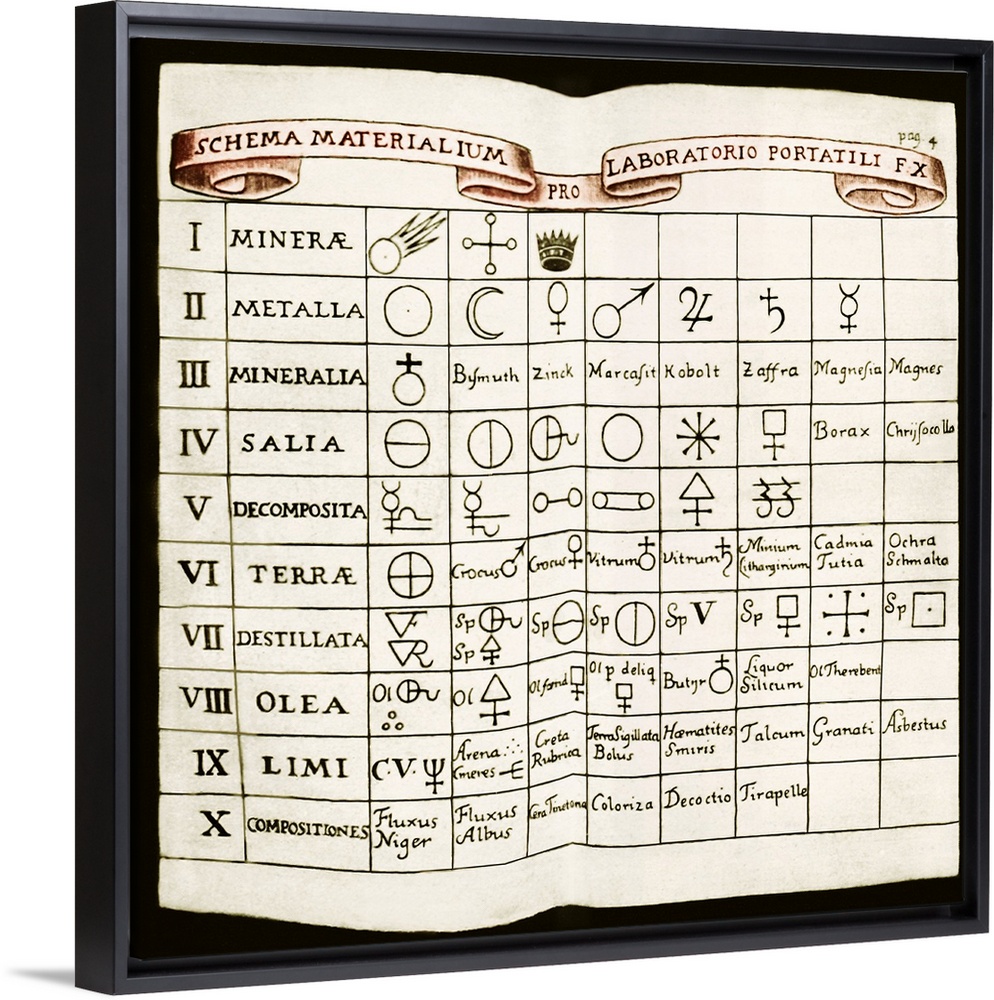 pag 4
SCHEMA MATERIALIUM PRO LABORATORIO PORTATILI F.X
I MINERÆ
II METALLA
III MINERALIA Bysmuth Zinck Marcasit Kobolt Zaffra Magnesia Magnes
IV SALIA Borax Chrijsocolla
V DECOMPOSITA
VI TERRÆ Crocus Crocus Vitrum Vitrum Minium Cadmia Ochra
Litharginium Tutia Schmalta
VII DESTILLATA Sp Sp Sp Sp V Sp Sp
Sp
VIII OLEA Ol Ol Ol p deliq Butyr Liquor Ol Therebent
Silicum
IX LIMI C.V. Arena Creta Terra Sigillata Hæmatites Talcum Granati Asbestus
Cineres Rubrica Bolus Smiris
X COMPOSITIONES Fluxus Fluxus Coloriza Decoctio Tirapelle
Niger Albus